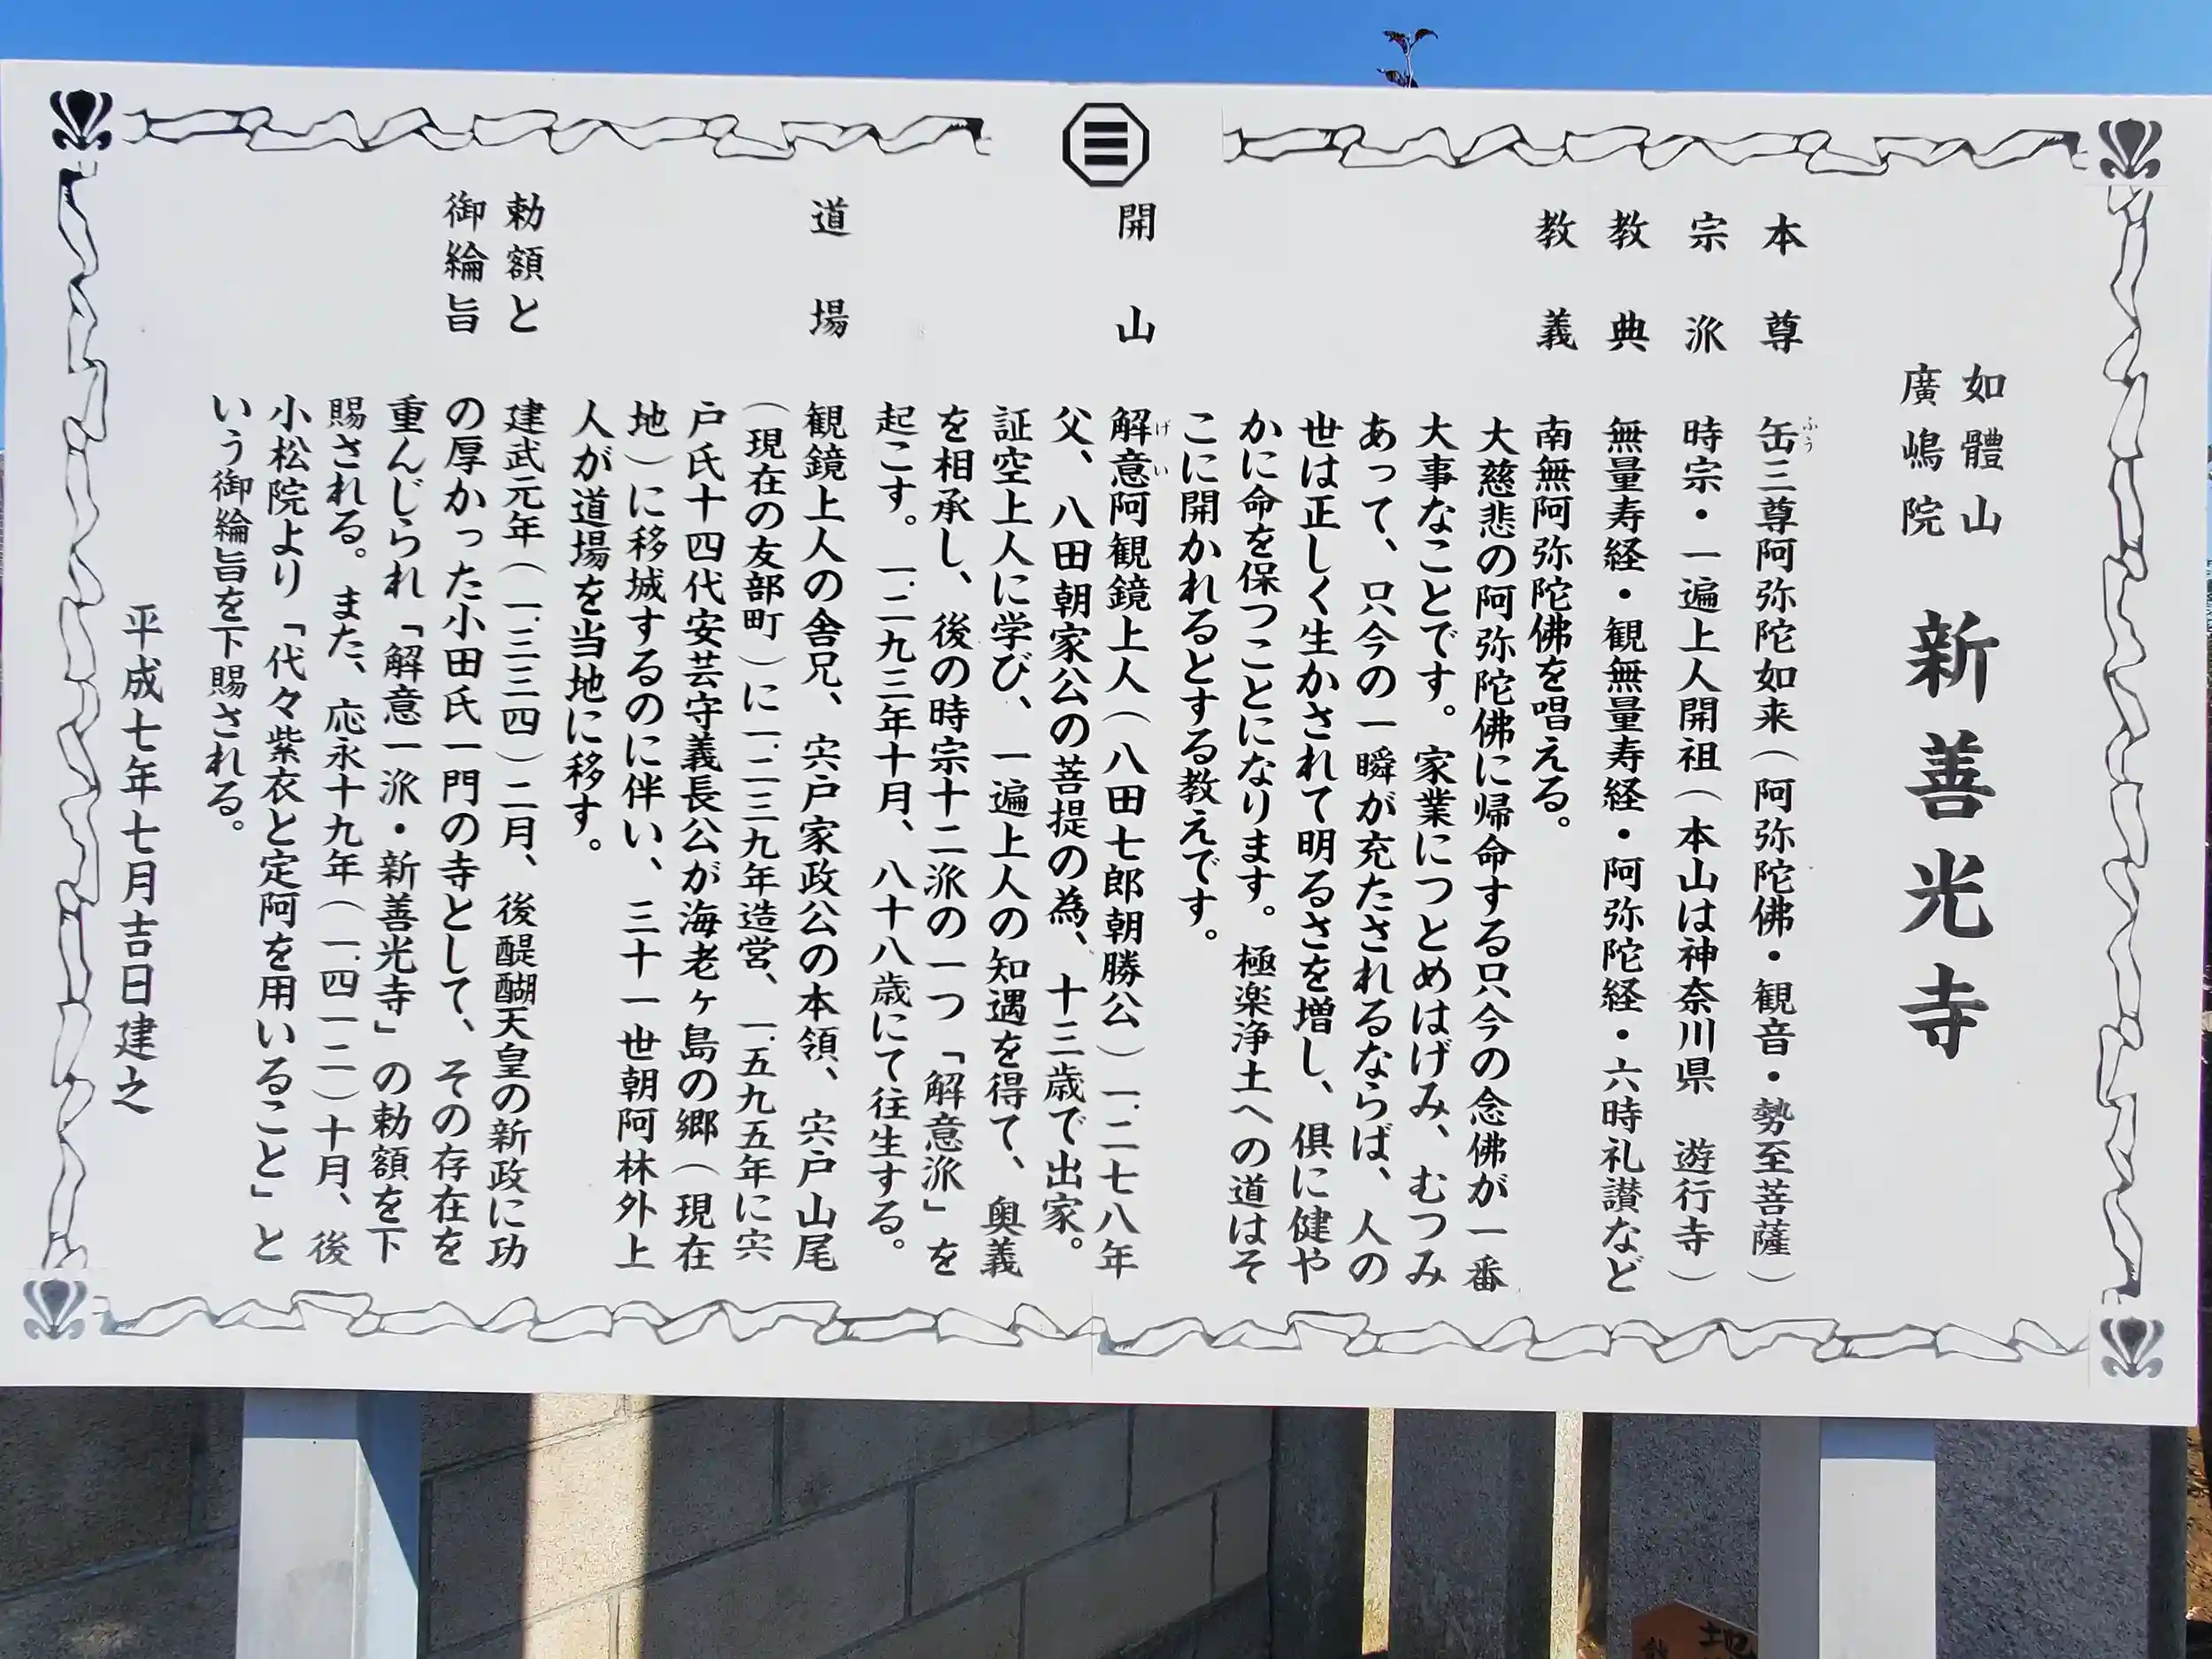 如體山
廣嶋院
新善光寺
本尊
缶三尊阿弥陀如来（阿弥陀佛・観音・勢至菩薩）
ふう
宗派
時宗・一遍上人開祖（本山は神奈川県　遊行寺）
教典
無量寿経・観無量寿経・阿弥陀経・六時礼讃など
教義
南無阿弥陀佛を唱える。
大慈悲の阿弥陀佛に帰命する只今の念佛が一番
大事なことです。家業につとめはげみ、むつみ
あって、只今の一瞬が充たされるならば、人の
世は正しく生かされて明るさを増し、倶に健や
かに命を保つことになります。極楽浄土への道はそ
こに開かれるとする教えです。
開山
解意阿観鏡上人（八田七郎朝勝公）一二七八年
げい
父、八田朝家公の菩提の為、十三歳で出家。
証空上人に学び、一遍上人の知遇を得て、奥義
を相承し、後の時宗十二派の一つ「解意派」を
起こす。一二九三年十月、八十八歳にて往生する。
道場
観鏡上人の舎兄、宍戸家政公の本領、宍戸山尾
（現在の友部町）に一二三九年造営、一五九五年に宍
戸氏十四代安芸守義長公が海老ヶ島の郷（現在
地）に移城するのに伴い、三十一世朝阿林外上
人が道場を当地に移す。
勅額と
御綸旨
建武元年（一三三四）二月、後醍醐天皇の新政に功
の厚かった小田氏一門の寺として、その存在を
重んじられ「解意一派・新善光寺」の勅額を下
賜される。また、応永十九年（一四一二）十月、後
小松院より「代々紫衣と定阿を用いること」と
いう御綸旨を下賜される。
平成七年七月吉日建之
地